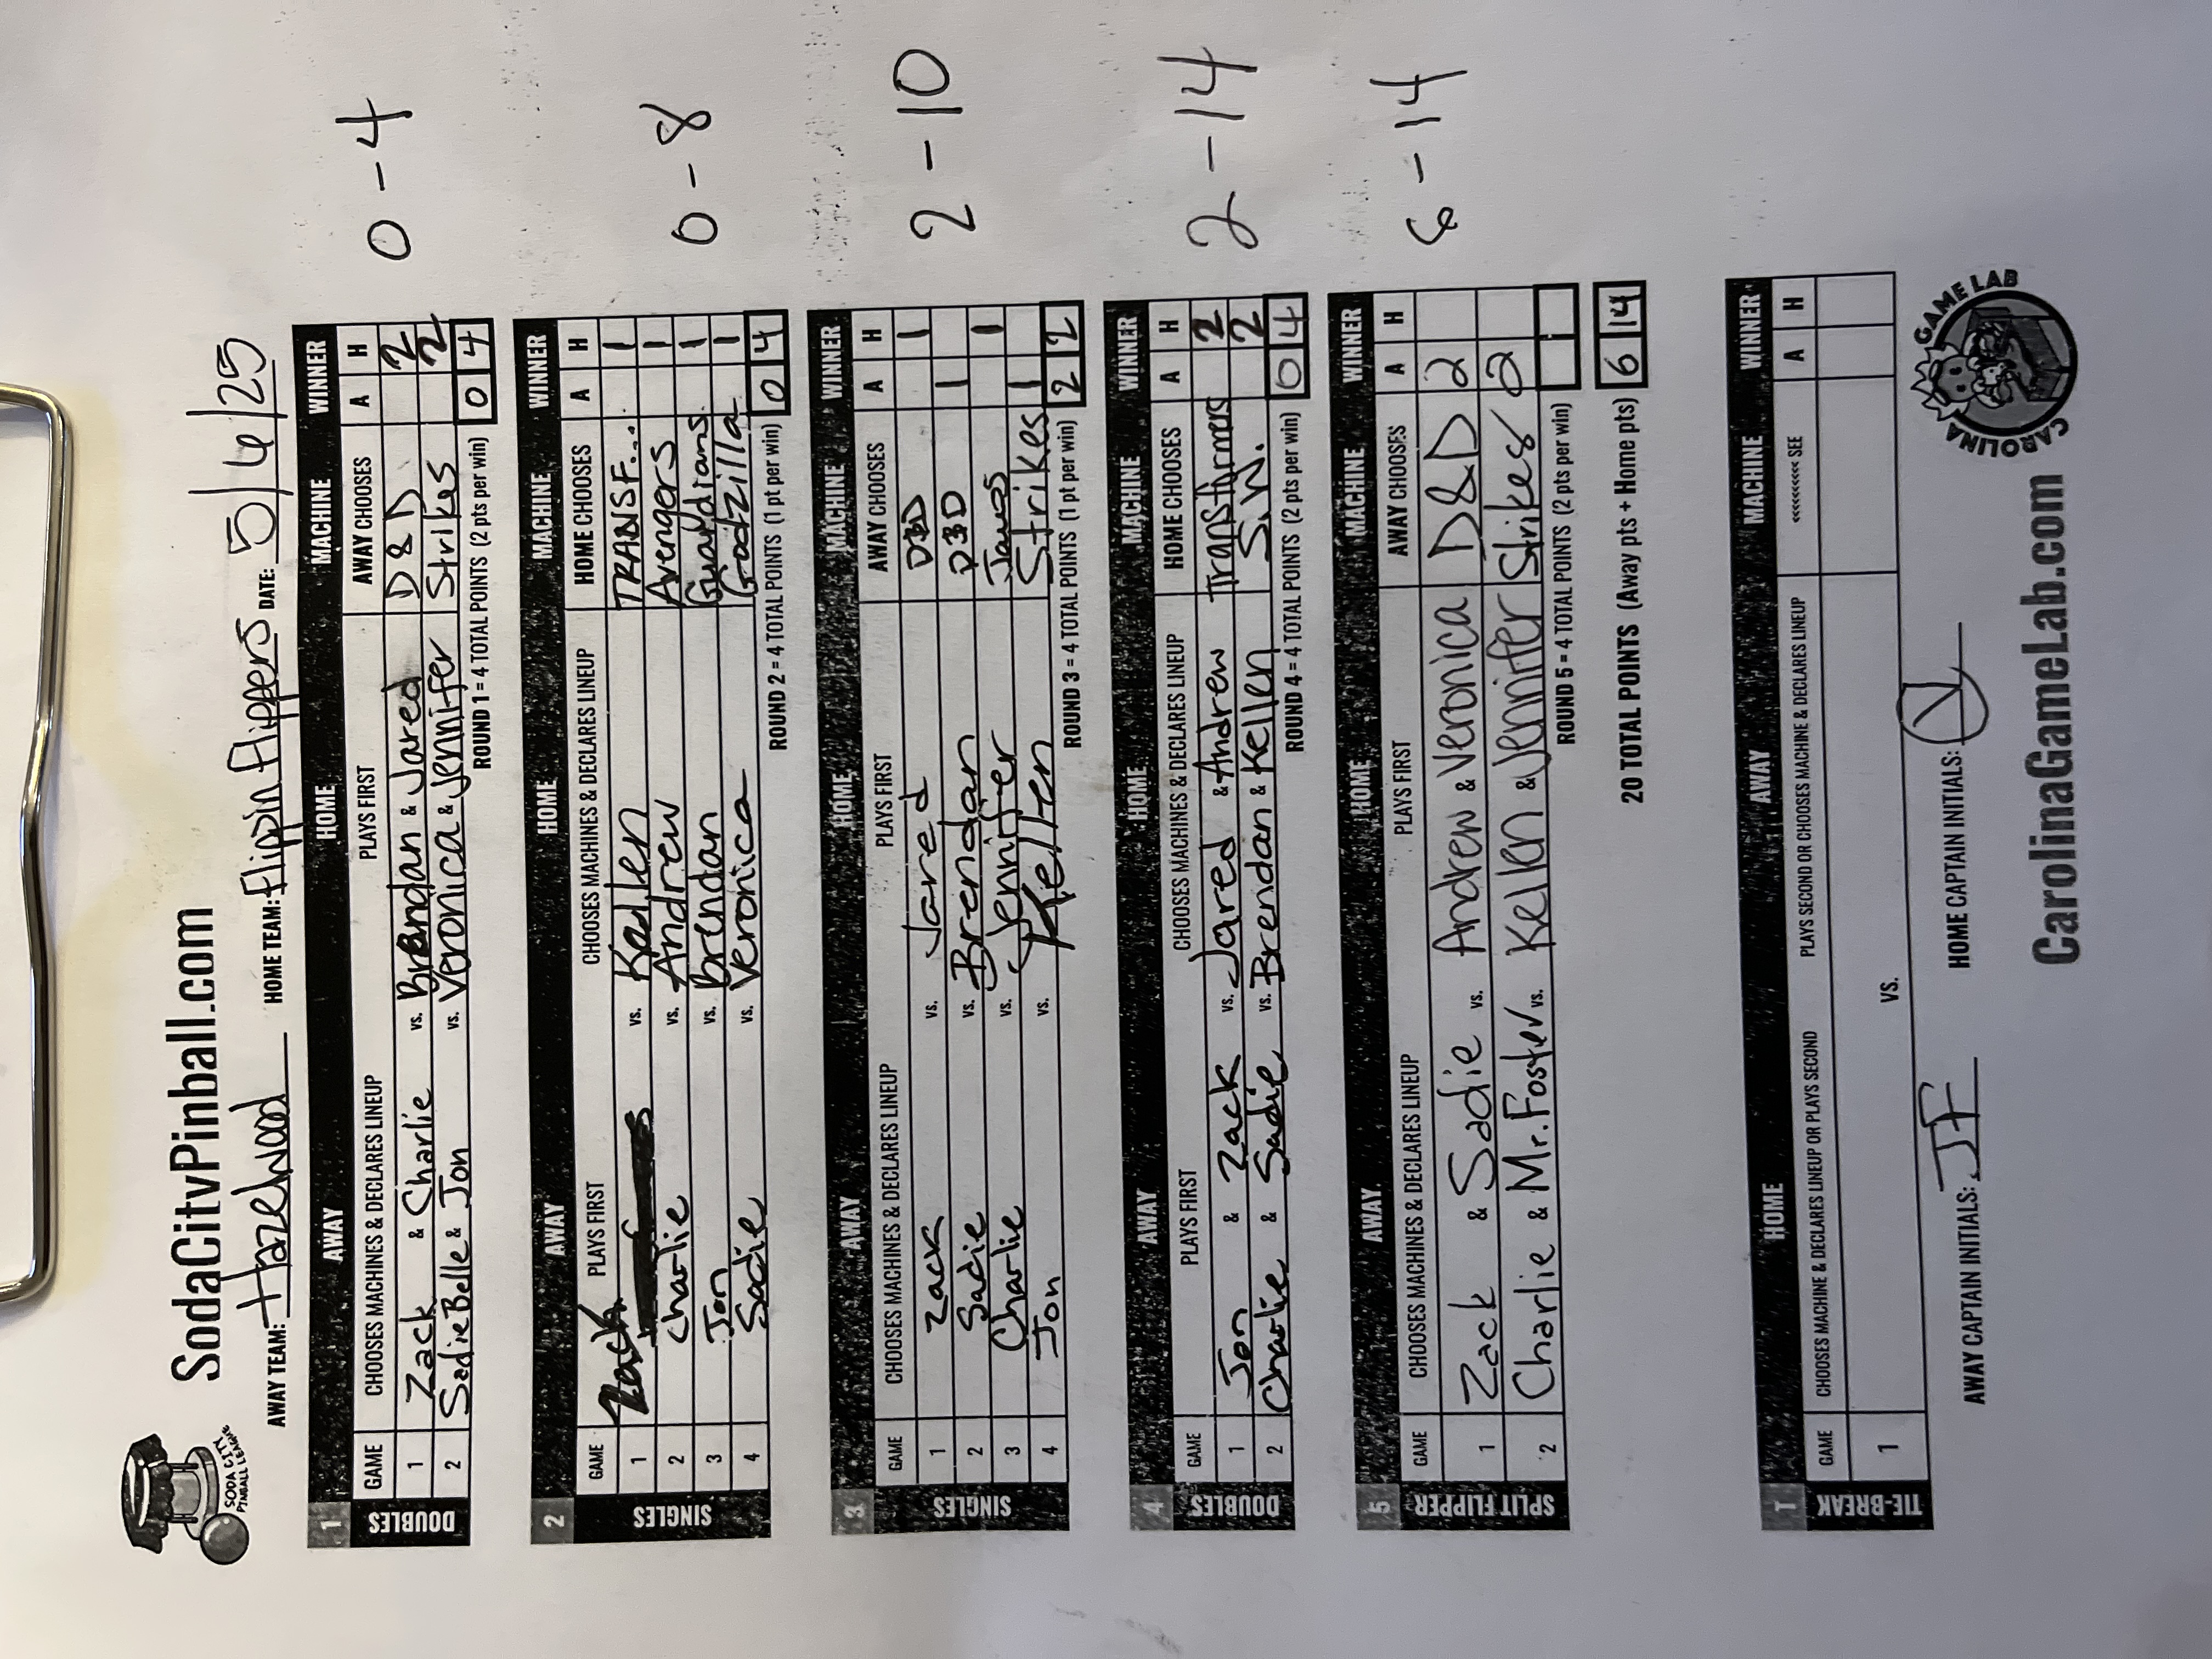 SodaCityPinball.com
SODA CITY PINBALL LEAGUE
AWAY TEAM: Hazelwood HOME TEAM: Flippin Flippers DATE: 5/6/25
1 AWAY HOME MACHINE WINNER
GAME CHOOSES MACHINES & DECLARES LINEUP PLAYS FIRST AWAY CHOOSES A H
DOUBLES
1 Zack & Charlie vs. Brendan & Jared D&D 2
2 SadieBelle & Jon vs. Veronica & Jennifer Strikes 2
ROUND 1 = 4 TOTAL POINTS (2 pts per win) 0 4
0 - 4
2 AWAY HOME MACHINE WINNER
GAME PLAYS FIRST CHOOSES MACHINES & DECLARES LINEUP HOME CHOOSES A H
SINGLES
1 Zack vs. Kellen TRANSF... 1
2 Charlie vs. Andrew Avengers 1
3 Jon vs. Brendan Guardians 1
4 Sadie vs. Veronica Godzilla 1
ROUND 2 = 4 TOTAL POINTS (1 pt per win) 0 4
0 - 8
3 AWAY HOME MACHINE WINNER
GAME CHOOSES MACHINES & DECLARES LINEUP PLAYS FIRST AWAY CHOOSES A H
SINGLES
1 Zack vs. Jared D&D 1
2 Sadie vs. Brendan D&D 1
3 Charlie vs. Jennifer Jaws 1
4 Jon vs. Kellen Strikes 1
ROUND 3 = 4 TOTAL POINTS (1 pt per win) 2 2
2 - 10
4 AWAY HOME MACHINE WINNER
GAME PLAYS FIRST CHOOSES MACHINES & DECLARES LINEUP HOME CHOOSES A H
DOUBLES
1 Jon & Zack vs. Jared & Andrew Transformers 2
2 Charlie & Sadie vs. Brendan & Kellen S.W. 2
ROUND 4 = 4 TOTAL POINTS (2 pts per win) 0 4
2 - 14
5 AWAY HOME MACHINE WINNER
GAME CHOOSES MACHINES & DECLARES LINEUP PLAYS FIRST AWAY CHOOSES A H
SPLIT FLIPPER
1 Zack & Sadie vs. Andrew & Veronica D&D 2
2 Charlie & Mr. Foster vs. Kellen & Jennifer Strikes 2
ROUND 5 = 4 TOTAL POINTS (2 pts per win)
6 - 14
20 TOTAL POINTS (Away pts + Home pts) 6 14
T HOME AWAY MACHINE WINNER
GAME CHOOSES MACHINE & DECLARES LINEUP OR PLAYS SECOND PLAYS SECOND OR CHOOSES MACHINE & DECLARES LINEUP <<<<<<<<< SEE A H
TIE-BREAK
1 vs.
AWAY CAPTAIN INITIALS: JF HOME CAPTAIN INITIALS: V
CarolinaGameLab.com
CAROLINA GAME LAB